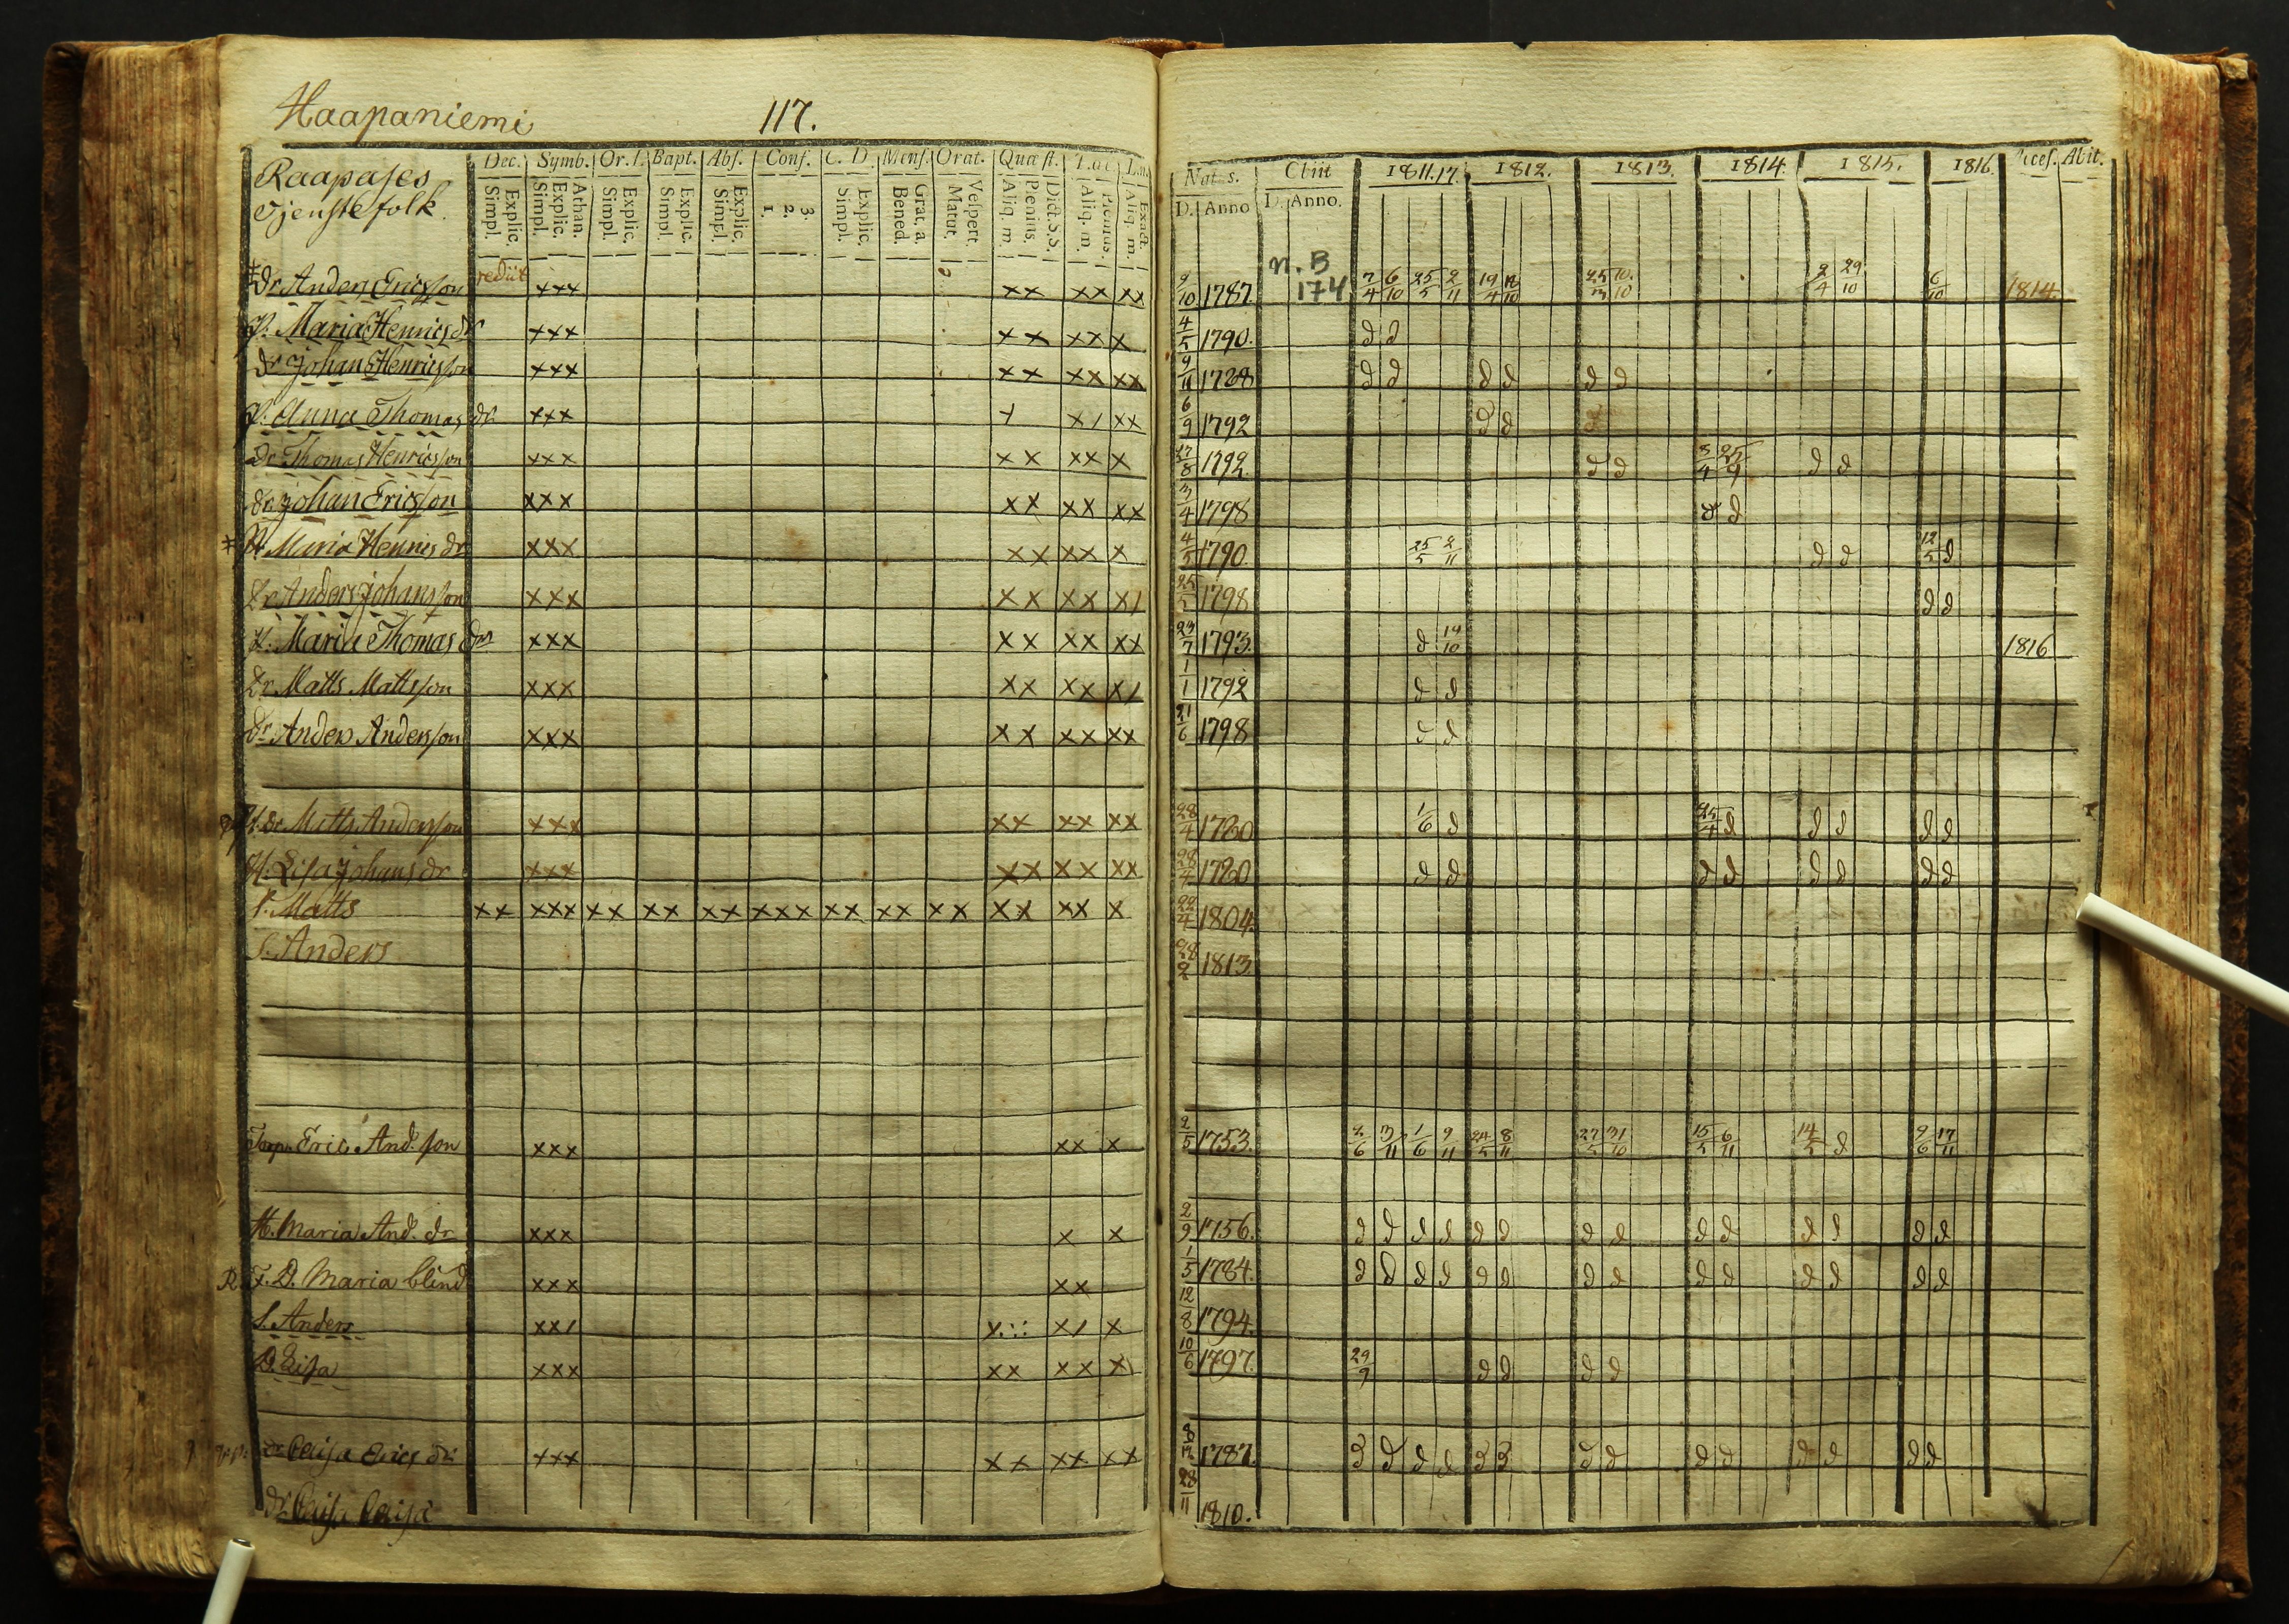 Haapaniemi 117.
Raapases Dec. Symb. Or. D. Bapt. Abs. Conf. C. D. Mens. Orat. Quæst.
Tjenstefolk. Simpl. Explic. Simpl. Explic. Athan. Simpl. Explic. Simpl. Explic. Simpl. Explic. 1. 2. 3. Simpl. Explic. Bened. Grat. a. Matut. Vespert. Aliq. m. Plenius. Dict. S.S. Aliq. m. Plenius. Aliq. m. Exact.
Nat. s. Obiit 1811.17. 1812. 1813. 1814. 1815. 1816. Acces. Abit.
D. Anno D. Anno.
Dr Anders Ericsson rediit xxx xx xx xx 9/10 1787. n. B 174 7/4 6/10 25/5 2/11 19/4 18/10 25/3 10/10 2/4 29/10 6/10 1814.
P. Maria Henrics dr xxx xx xx x 4/5 1790. d d
Dr Johan Henricsson xxx xx xx xx 9/11 1788 d d d d d d
P. Anna Thomas dr xxx x x/ xx 6/9 1792 d d d
Dr Thomas Henricsson xxx xx xx x 17/8 1792. d d 3/4 25/9 d d
Dr Johan Ericsson xxx xx xx xx 3/4 1798 d d
P. Maria Henrics dr xxx xx xx x 4/5 1790. 25/5 2/11 d d 12/5 d
Dr Anders Johansson xxx xx xx x/ 1798 d d
P. Maria Thomas dr xxx xx xx xx 23/7 1793. d 14/10 1816
Dr Matts Mattsson xxx xx xx x/ 1/1 1792 d d
Dr Anders Andersson xxx xx xx xx 21/6 1798 d d
Dr Matts Andersson xxx xx xx xx 28/4 1780 1/6 d 25/4 d d d d d
H. Lisa Johans dr xxx xx xx xx 1780 d d d d d d d d
S. Matts xx xxx xx xx xx xxx xx xx xx xx xx x 22/4 1804.
S. Anders 28/2 1813
Torp. Eric And. son xxx xx x 2/5 1753. 2/6 3/11 1/6 9/11 24/5 8/11 27/5 31/10 15/5 6/11 14/5 d 9/6 17/11
H. Maria And. dr xxx x x 2/9 1756. d d d d d d d d d d d d d d
D. Maria blind xxx xx 1/5 1784. d d d d d d d d d d d d d d
S. Anders xx/ x.:: x/ x 12/8 1794.
D. Lisa xxx xx xx x\ 10/6 1797. 29/9 d d d d
Caisa Erics dr xxx xx xx xx 1787. d d d d d d d d d d d d d d
Dr. Caisa Caisa 28/11 1810.